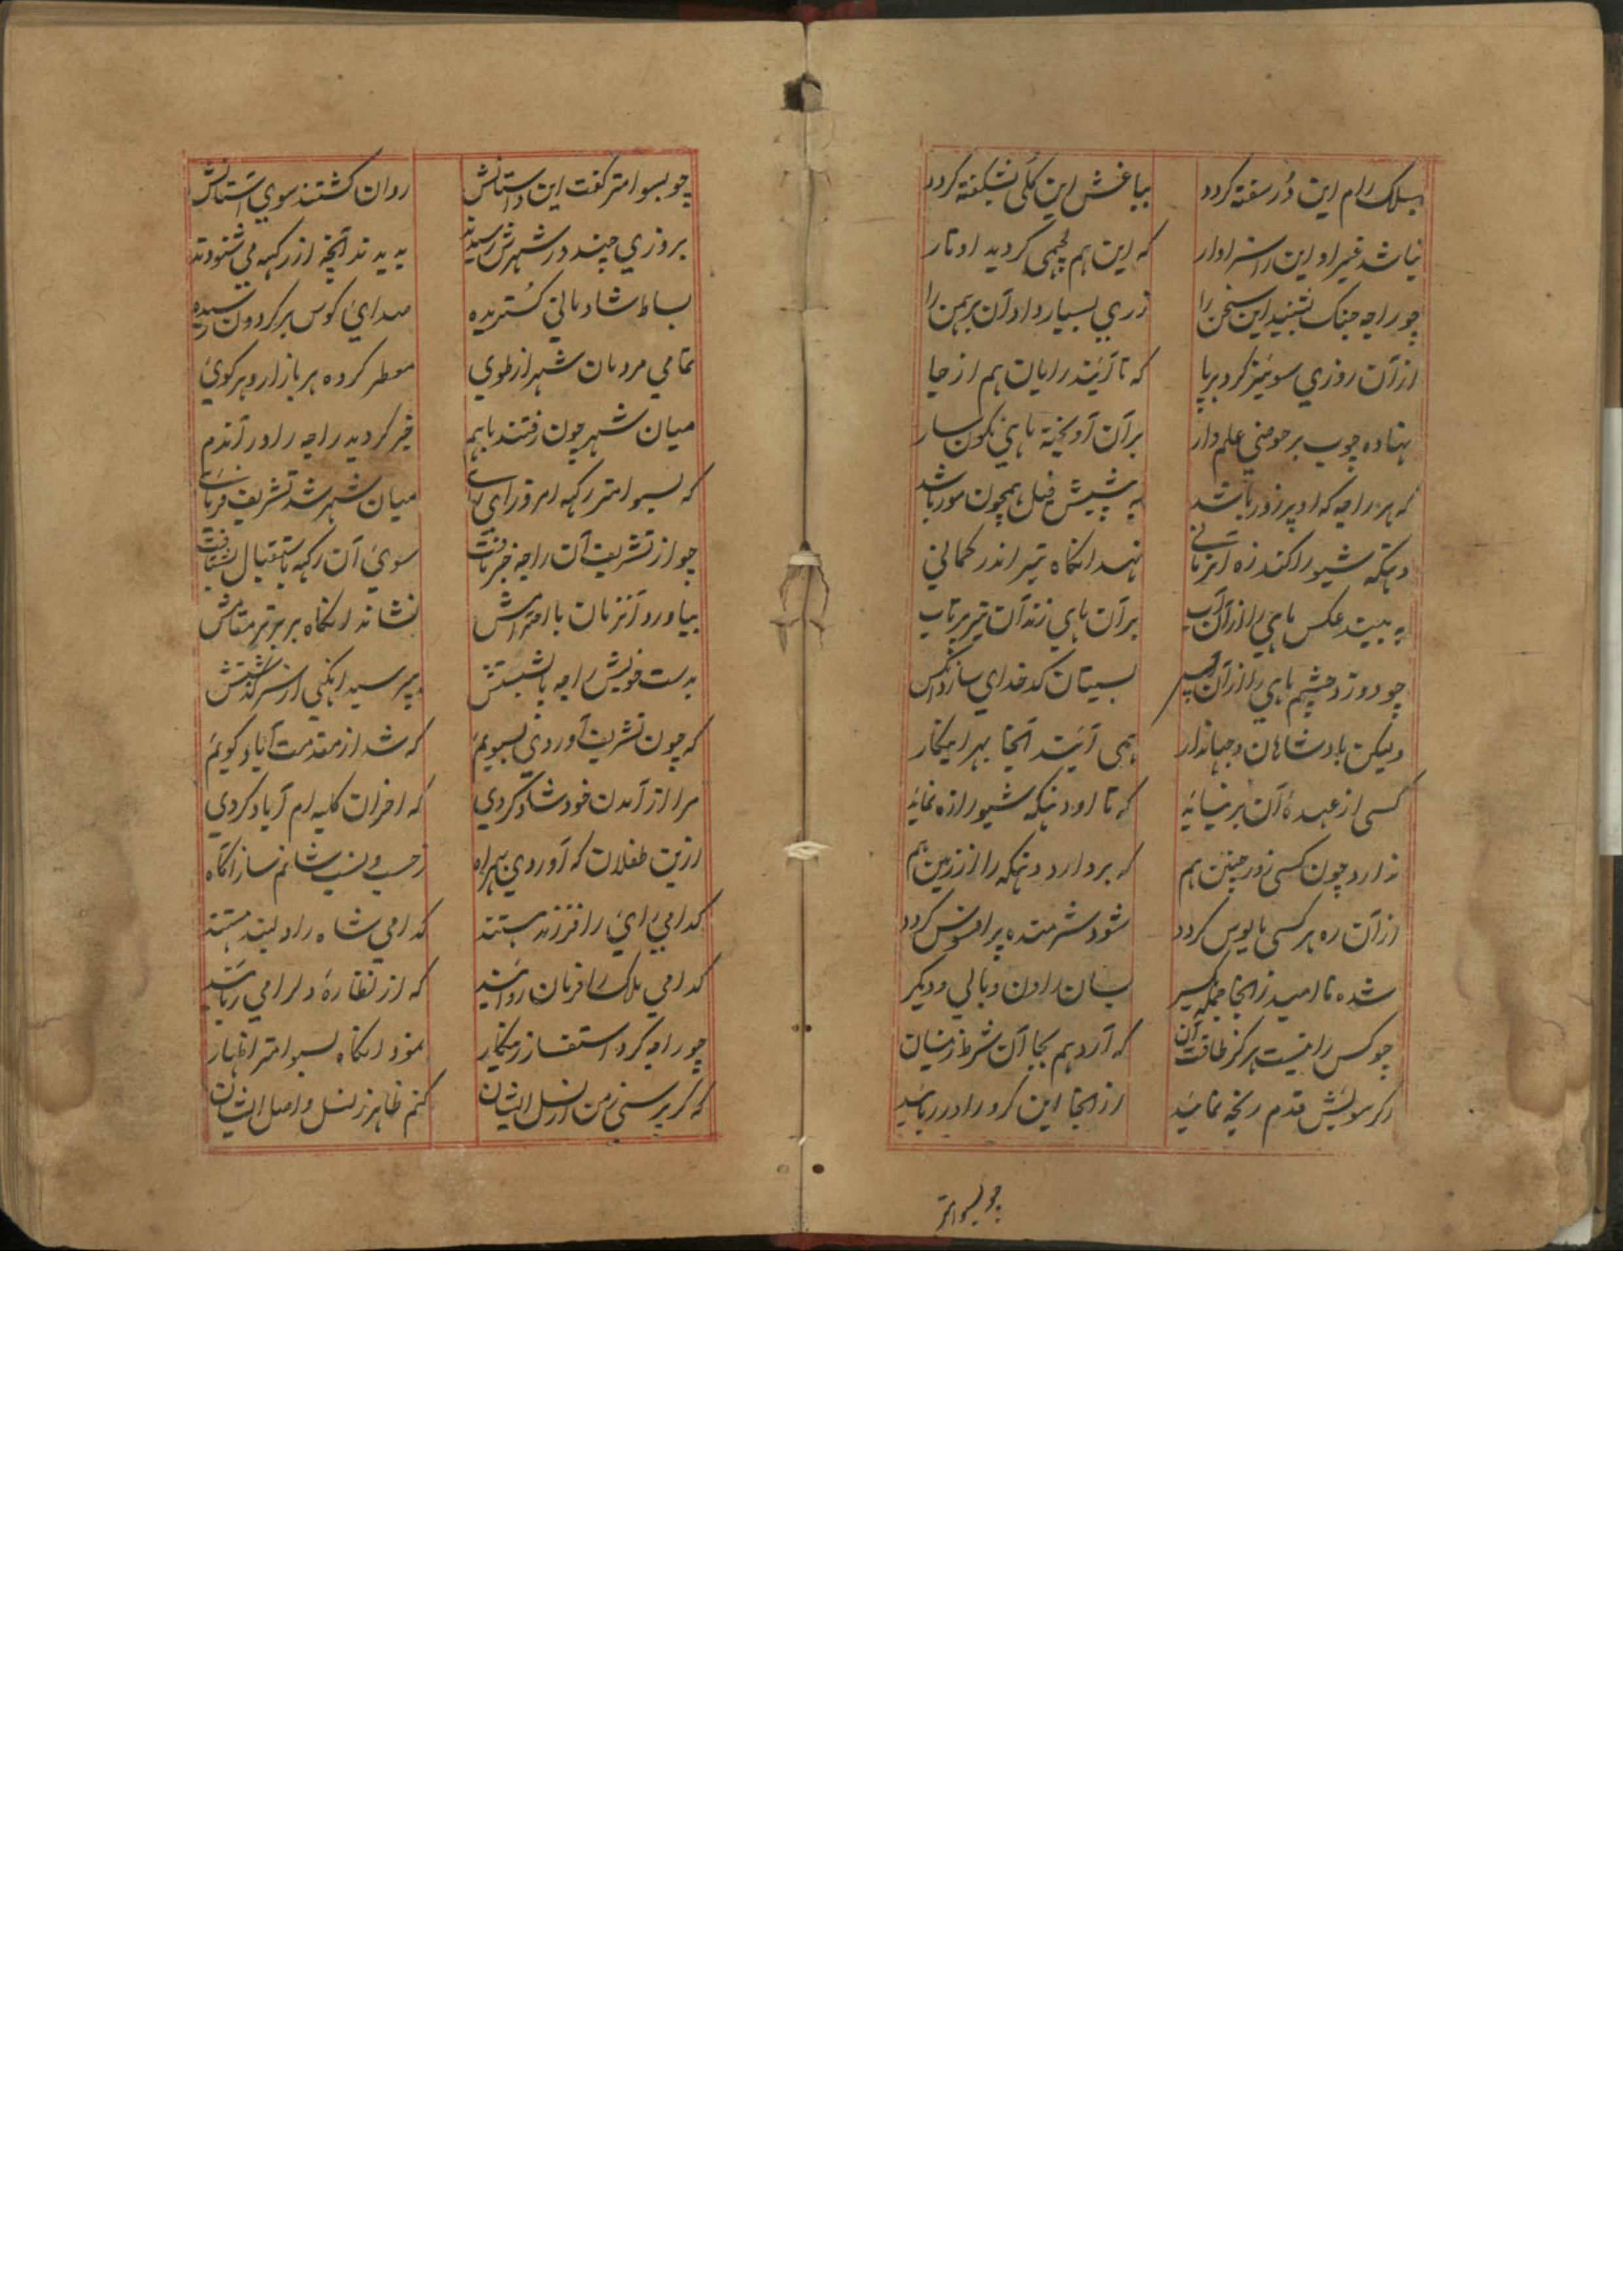 بسلک رام این دُر سفته کردد بباغش این کُلی نشکفته کردد
نباشد غیر او این را سزاوار که این هم لچهمی کردید اوتار
چو راجه جنک بشنید این سخن را زری بسیار داد آن برهمن را
از آن روزی سوئنبر کرد برپا که تا آیند رایان هم از جا
نهاده چوب بر حوضی علم دار بر آن آویخته ماهی نکون سار
که هر راجه که او پرزور باشد به پیشش فیل همچون مور باشد
دهنکه شیو را کند زه آنزمانی نهد انکاه تیر اندر کمانی
به بیند عکس ماهی را از آن آب بر آن ماهی زند آن تیر پرتاب
چو دوزد چشم ماهی را از آن تیر بسیتان کدخدای سازد
ولیکن بادشاهان و جهاندار همی آیند آنجا بهر اینکار
کسی از عهدهٔ آن بر نیایه که تا او دهنکه شیو را زه نمایه
ندارد چون کسی زور چنین هم که بردارد دهنکه را از زمین هم
از آن ره هر کسی مایوس کردد شود شرمنده پر افسوس کردد
شده ناامید زانجا جمله بسان راون و بالی و دیکر
چو کس را نیست هرکز طاقت آن که آرد هم بجا آن شرط زمینسان
اکر سویش قدم رنجه نمایید از انجا این کرو را در ربایید
چو بسوامتر
چو بسوامتر کفت این داستانش روان کشتند سوی آستانش
بروزی چند در شهرش رسیدند به دیدند آنچه از رکهه می شنودند
بساط شادمانی کُستریده صدای کوس بر کردون رسیده
تمامی مردمان شهر از طوی معطر کرده هر بازار و هر کوی
میان شهر چون رفتند باهم خبر کردید راجه را در آندم
که بسوامتر رکهه امروز میان شهر شد تشریف فرمای
چو از تشریف آن راجه خبر یافت سوی آن رکهه باستقبال بشتافت
بیاورد آنزمان با احترامش نشاند انکاه بر برتر مقامش
بدست خویش راجه پا بشستش بپرسید انکهی از سرکذشتش
که چون تشریف آوردی بسویم که شد از مقدمت آباد کویم
مرا از آمدن خود شاد کردی که احزان کلبه ام آباد کردی
ازین طفلان که آوردی بهمراه ز حسب و نسب شانم ساز آکاه
کدامی رای را فرزند هستند کدامی شاه را دلبند هستند
کدامی ملک را فرمان روایند که از نظارهٔ دلرا می ربایند
چو راجه کرد استفسار زینکار نمود انکاه بسوامتر اظهار
که کر پرسی ز من از نسل ایشان کنم ظاهر ز نسل و اصل ایشان